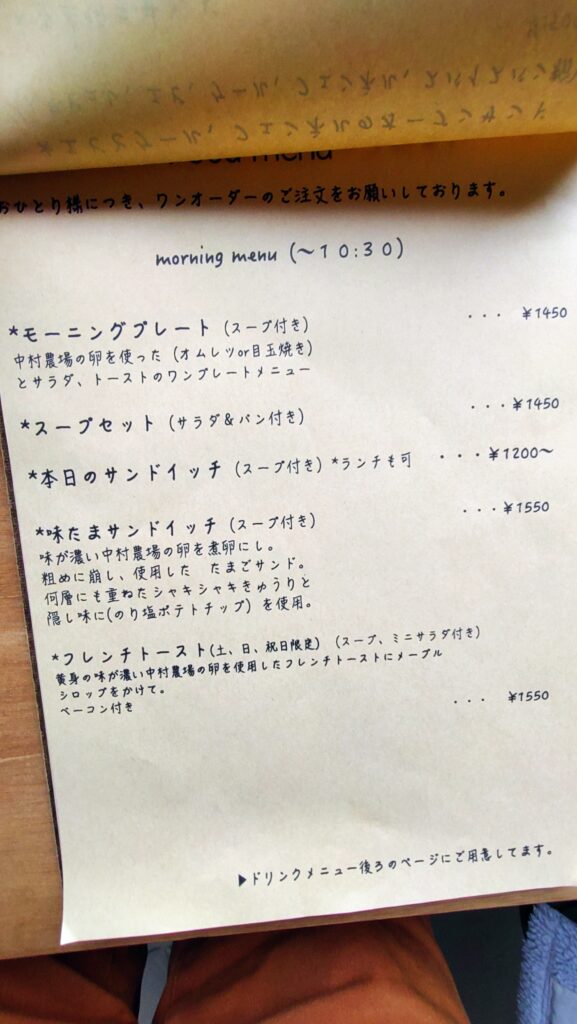 food menu
おひとり様につき、ワンオーダーのご注文をお願いしております。
morning menu (〜10:30)
*モーニングプレート (スープ付き) ・・・ ¥1450
中村農場の卵を使った (オムレツor目玉焼き)
とサラダ、トーストのワンプレートメニュー
*スープセット (サラダ&パン付き) ・・・¥1450
*本日のサンドイッチ (スープ付き) *ランチも可 ・・・¥1200〜
*味たまサンドイッチ (スープ付き) ・・・¥1550
味が濃い中村農場の卵を煮卵にし。
粗めに崩し、使用した たまごサンド。
何層にも重ねたシャキシャキきゅうりと
隠し味に(のり塩ポテトチップ) を使用。
*フレンチトースト(土、日、祝日限定) (スープ、ミニサラダ付き)
黄身の味が濃い中村農場の卵を使用したフレンチトーストにメープル
シロップをかけて。
ベーコン付き ・・・ ¥1550
▶ドリンクメニュー後ろのページにご用意してます。